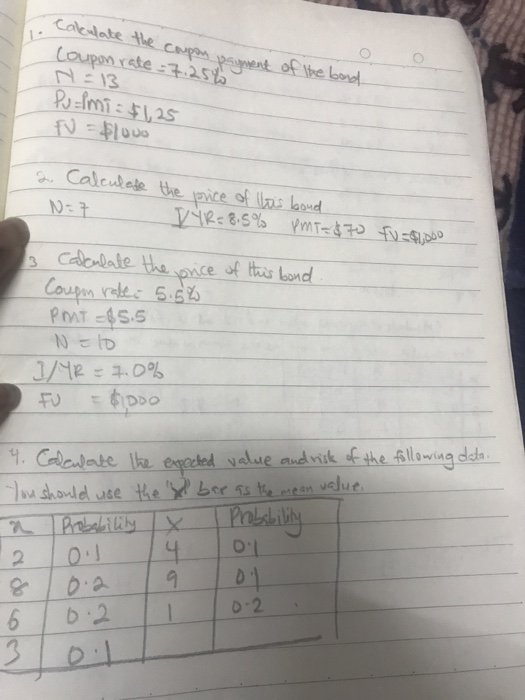 1. Calculate the coupon payment of the bond
Coupon rate = 7.25%
N = 13
PV = PMT = $1,25
FV = $1000
2. Calculate the price of this bond
N = 7 I/YR = 8.5% PMT = $70 FV = $1,000
3 Calculate the price of this bond.
Coupon rate = 5.5%
PMT = $5.5
N = 10
I/YR = 7.0%
FV = $1,000
4. Calculate the expected value and risk of the following data.
You should use the "x" bar as the mean value.
x Probability X Probability
2 0.1 4 0.1
8 0.2 9 0.1
6 0.2 1 0.2
3 0.1